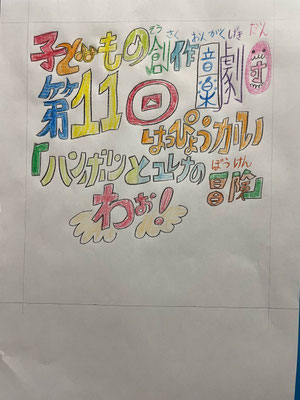 そう さく おん がく げき だん
子どもの創作音楽劇団
第11回
はっぴょうかい
ぼう けん
『 とユレナの冒険』
わぉ!